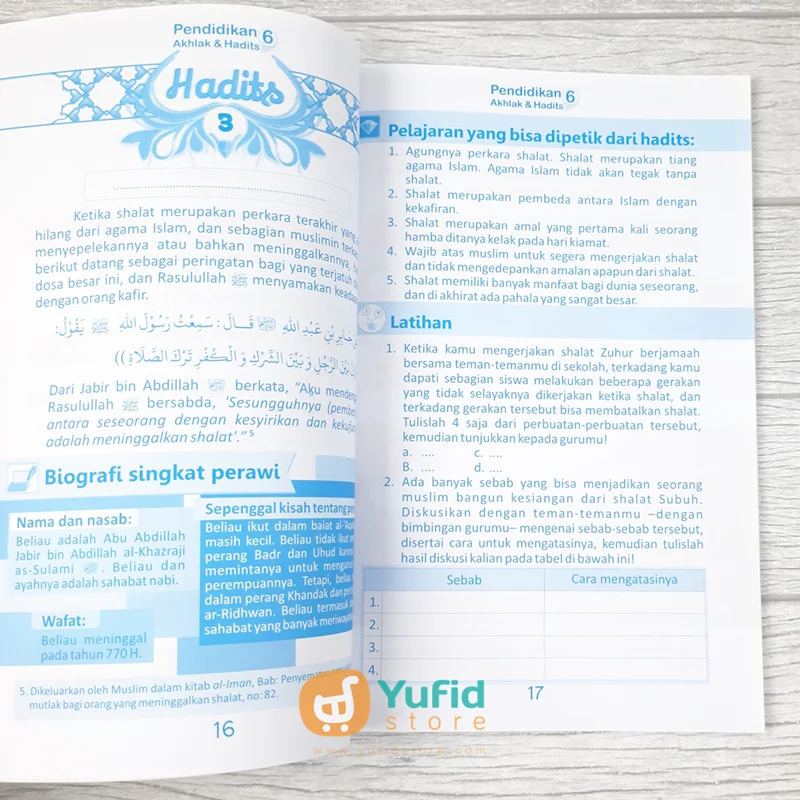 Pendidikan 6
Akhlak & Hadits
Hadits
3
Ketika shalat merupakan perkara terakhir yang
hilang dari agama Islam, dan sebagian muslimin
menyepelekannya atau bahkan meninggalkannya,
berikut datang sebagai peringatan bagi yang terjatuh
dosa besar ini, dan Rasulullah ﷺ menyamakan
dengan orang kafir.
جَابِرِ بْنِ عَبْدِ اللهِ قَالَ : سَمِعْتُ رَسُوْلَ اللهِ ﷺ يَقُوْلُ:
بَيْنَ الرَّجُلِ وَبَيْنَ الشِّرْكِ وَالْكُفْرِ تَرْكَ الصَّلَاةِ ))
Dari Jabir bin Abdillah berkata, “Aku
Rasulullah ﷺ bersabda, ‘Sesungguhnya
antara seseorang dengan kesyirikan dan
adalah meninggalkan shalat’.” 5
Biografi singkat perawi
Nama dan nasab:
Beliau adalah Abu Abdillah
Jabir bin Abdillah al-Khazraji
as-Sulami . Beliau dan
ayahnya adalah sahabat nabi.
Wafat:
Beliau meninggal
pada tahun 770 H.
Sepenggal kisah tentang
Beliau ikut dalam baiat
masih kecil. Beliau tidak ikut
perang Badr dan Uhud
memintanya untuk
perempuannya. Tetapi,
dalam perang Khandak dan
ar-Ridhwan. Beliau termasuk
sahabat yang banyak
5. Dikeluarkan oleh Muslim dalam kitab al-Iman, Bab:
mutlak bagi orang yang meninggalkan shalat, no: 82.
16
Pendidikan 6
Akhlak & Hadits
Pelajaran yang bisa dipetik dari hadits:
1. Agungnya perkara shalat. Shalat merupakan tiang
agama Islam. Agama Islam tidak akan tegak tanpa
shalat.
2. Shalat merupakan pembeda antara Islam dengan
kekafiran.
3. Shalat merupakan amal yang pertama kali seorang
hamba ditanya kelak pada hari kiamat.
4. Wajib atas muslim untuk segera mengerjakan shalat
dan tidak mengedepankan amalan apapun dari shalat.
5. Shalat memiliki banyak manfaat bagi dunia seseorang,
dan di akhirat ada pahala yang sangat besar.
Latihan
1. Ketika kamu mengerjakan shalat Zuhur berjamaah
bersama teman-temanmu di sekolah, terkadang kamu
dapati sebagian siswa melakukan beberapa gerakan
yang tidak selayaknya dikerjakan ketika shalat, dan
terkadang gerakan tersebut bisa membatalkan shalat.
Tulislah 4 saja dari perbuatan-perbuatan tersebut,
kemudian tunjukkan kepada gurumu!
a. .... c. ....
B. .... d. ....
2. Ada banyak sebab yang bisa menjadikan seorang
muslim bangun kesiangan dari shalat Subuh.
Diskusikan dengan teman-temanmu –dengan
bimbingan gurumu– mengenai sebab-sebab tersebut,
disertai cara untuk mengatasinya, kemudian tulislah
hasil diskusi kalian pada tabel di bawah ini!
Sebab Cara mengatasinya
1.
2.
3.
4.
17
Yufid
store
www.yufidstore.com